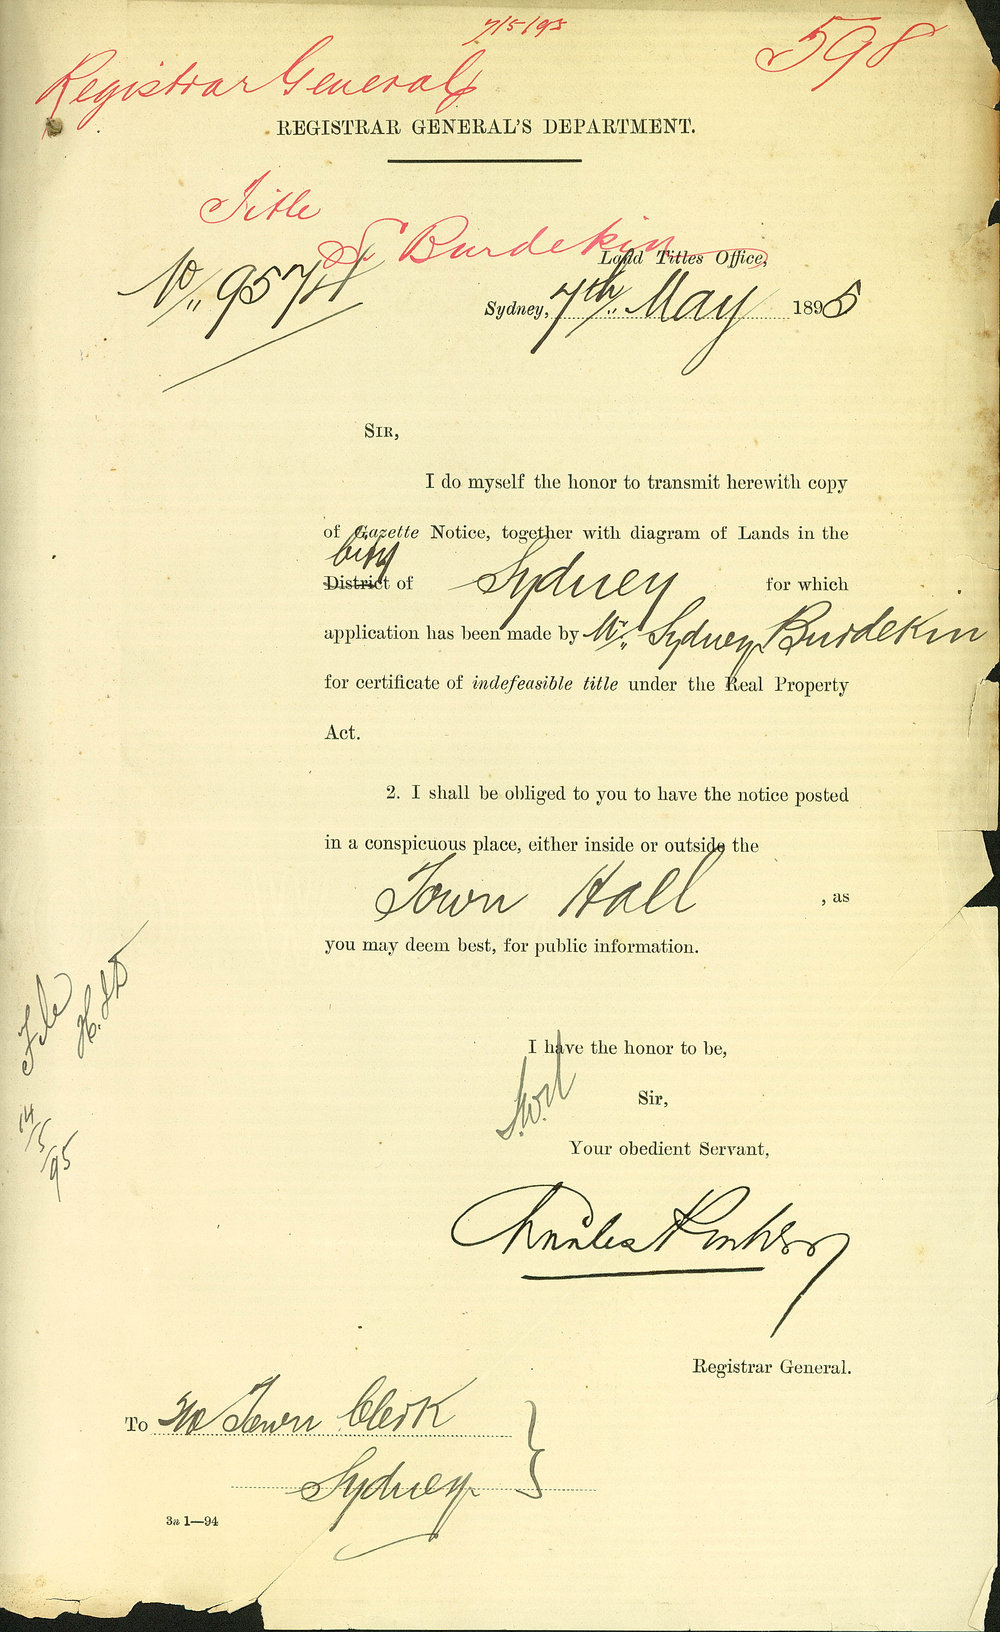 7/5/95
598
Registrar General
REGISTRAR GENERAL'S DEPARTMENT.
Title
S Burdekin
Land Titles Office,
No 9574
Sydney, 7th May 1895
SIR,
I do myself the honor to transmit herewith copy
of Gazette Notice, together with diagram of Lands in the
City
District of Sydney for which
application has been made by Mr. Sydney Burdekin
for certificate of indefeasible title under the Real Property
Act.
2. I shall be obliged to you to have the notice posted
in a conspicuous place, either inside or outside the
Town Hall , as
you may deem best, for public information.
File
14/5/95
I have the honor to be,
Sir,
Your obedient Servant,
Charles
Registrar General.
To The Town Clerk
Sydney
3a 1—94